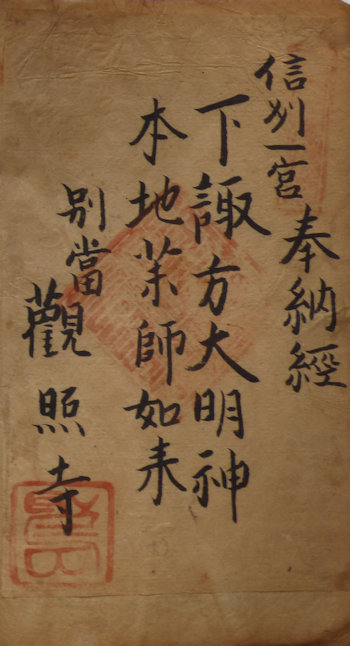 信刕一宮
奉納經
下諏方大明神
本地薬師如来
別當
觀照寺